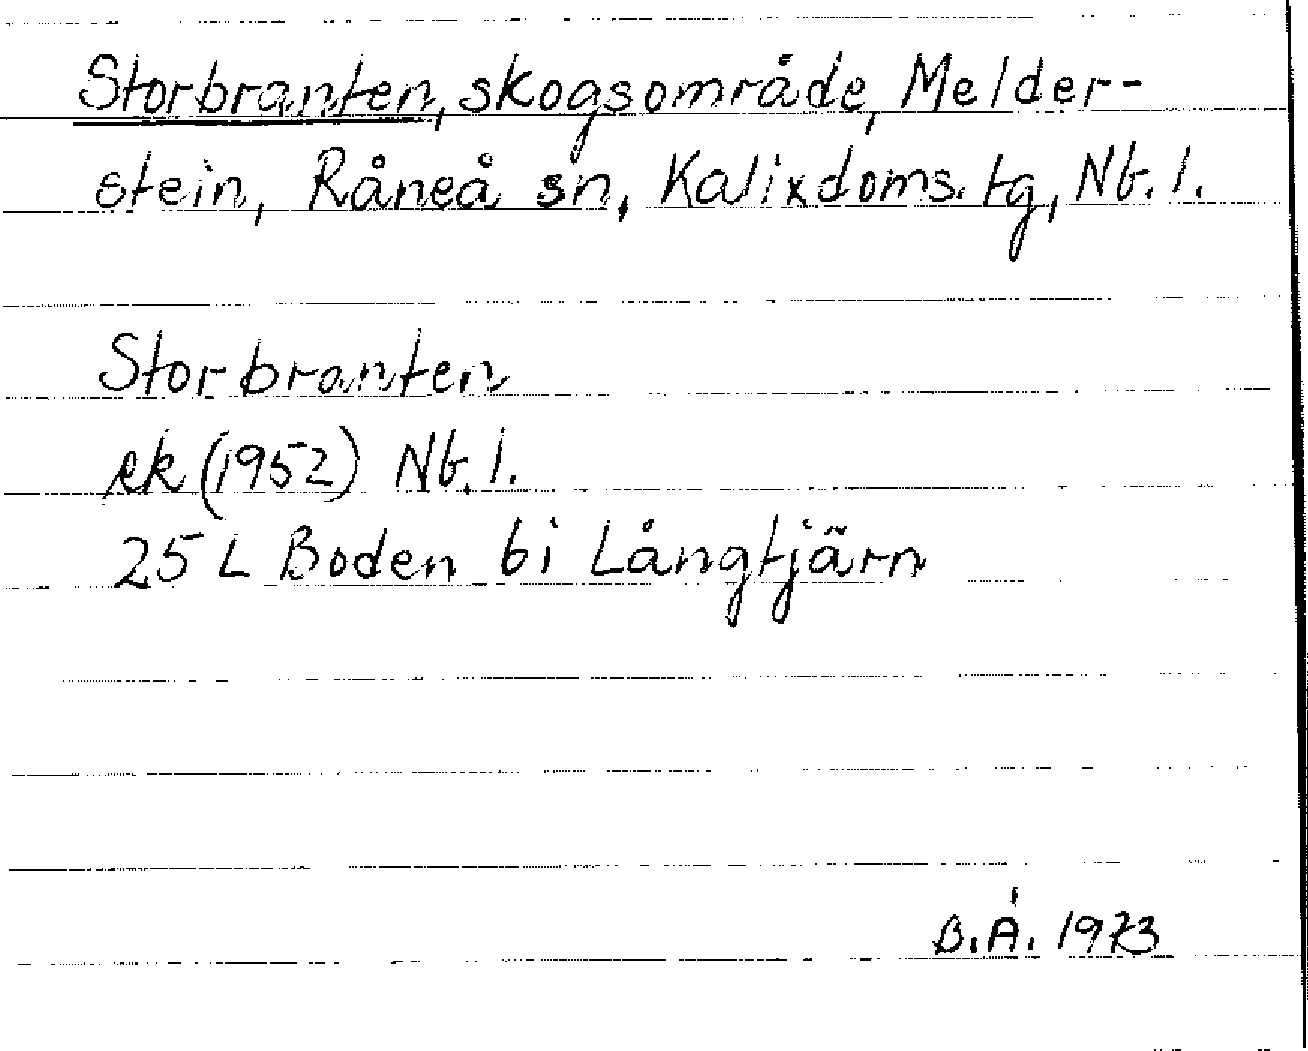 Storbranten, skogsområde, Melder-
stein, Råneå sn, Kalix doms. tg, Nb. l.
Storbranten
rk (1952) Nb. l.
25 L Boden bi Långtjärn
B.Å. 1973